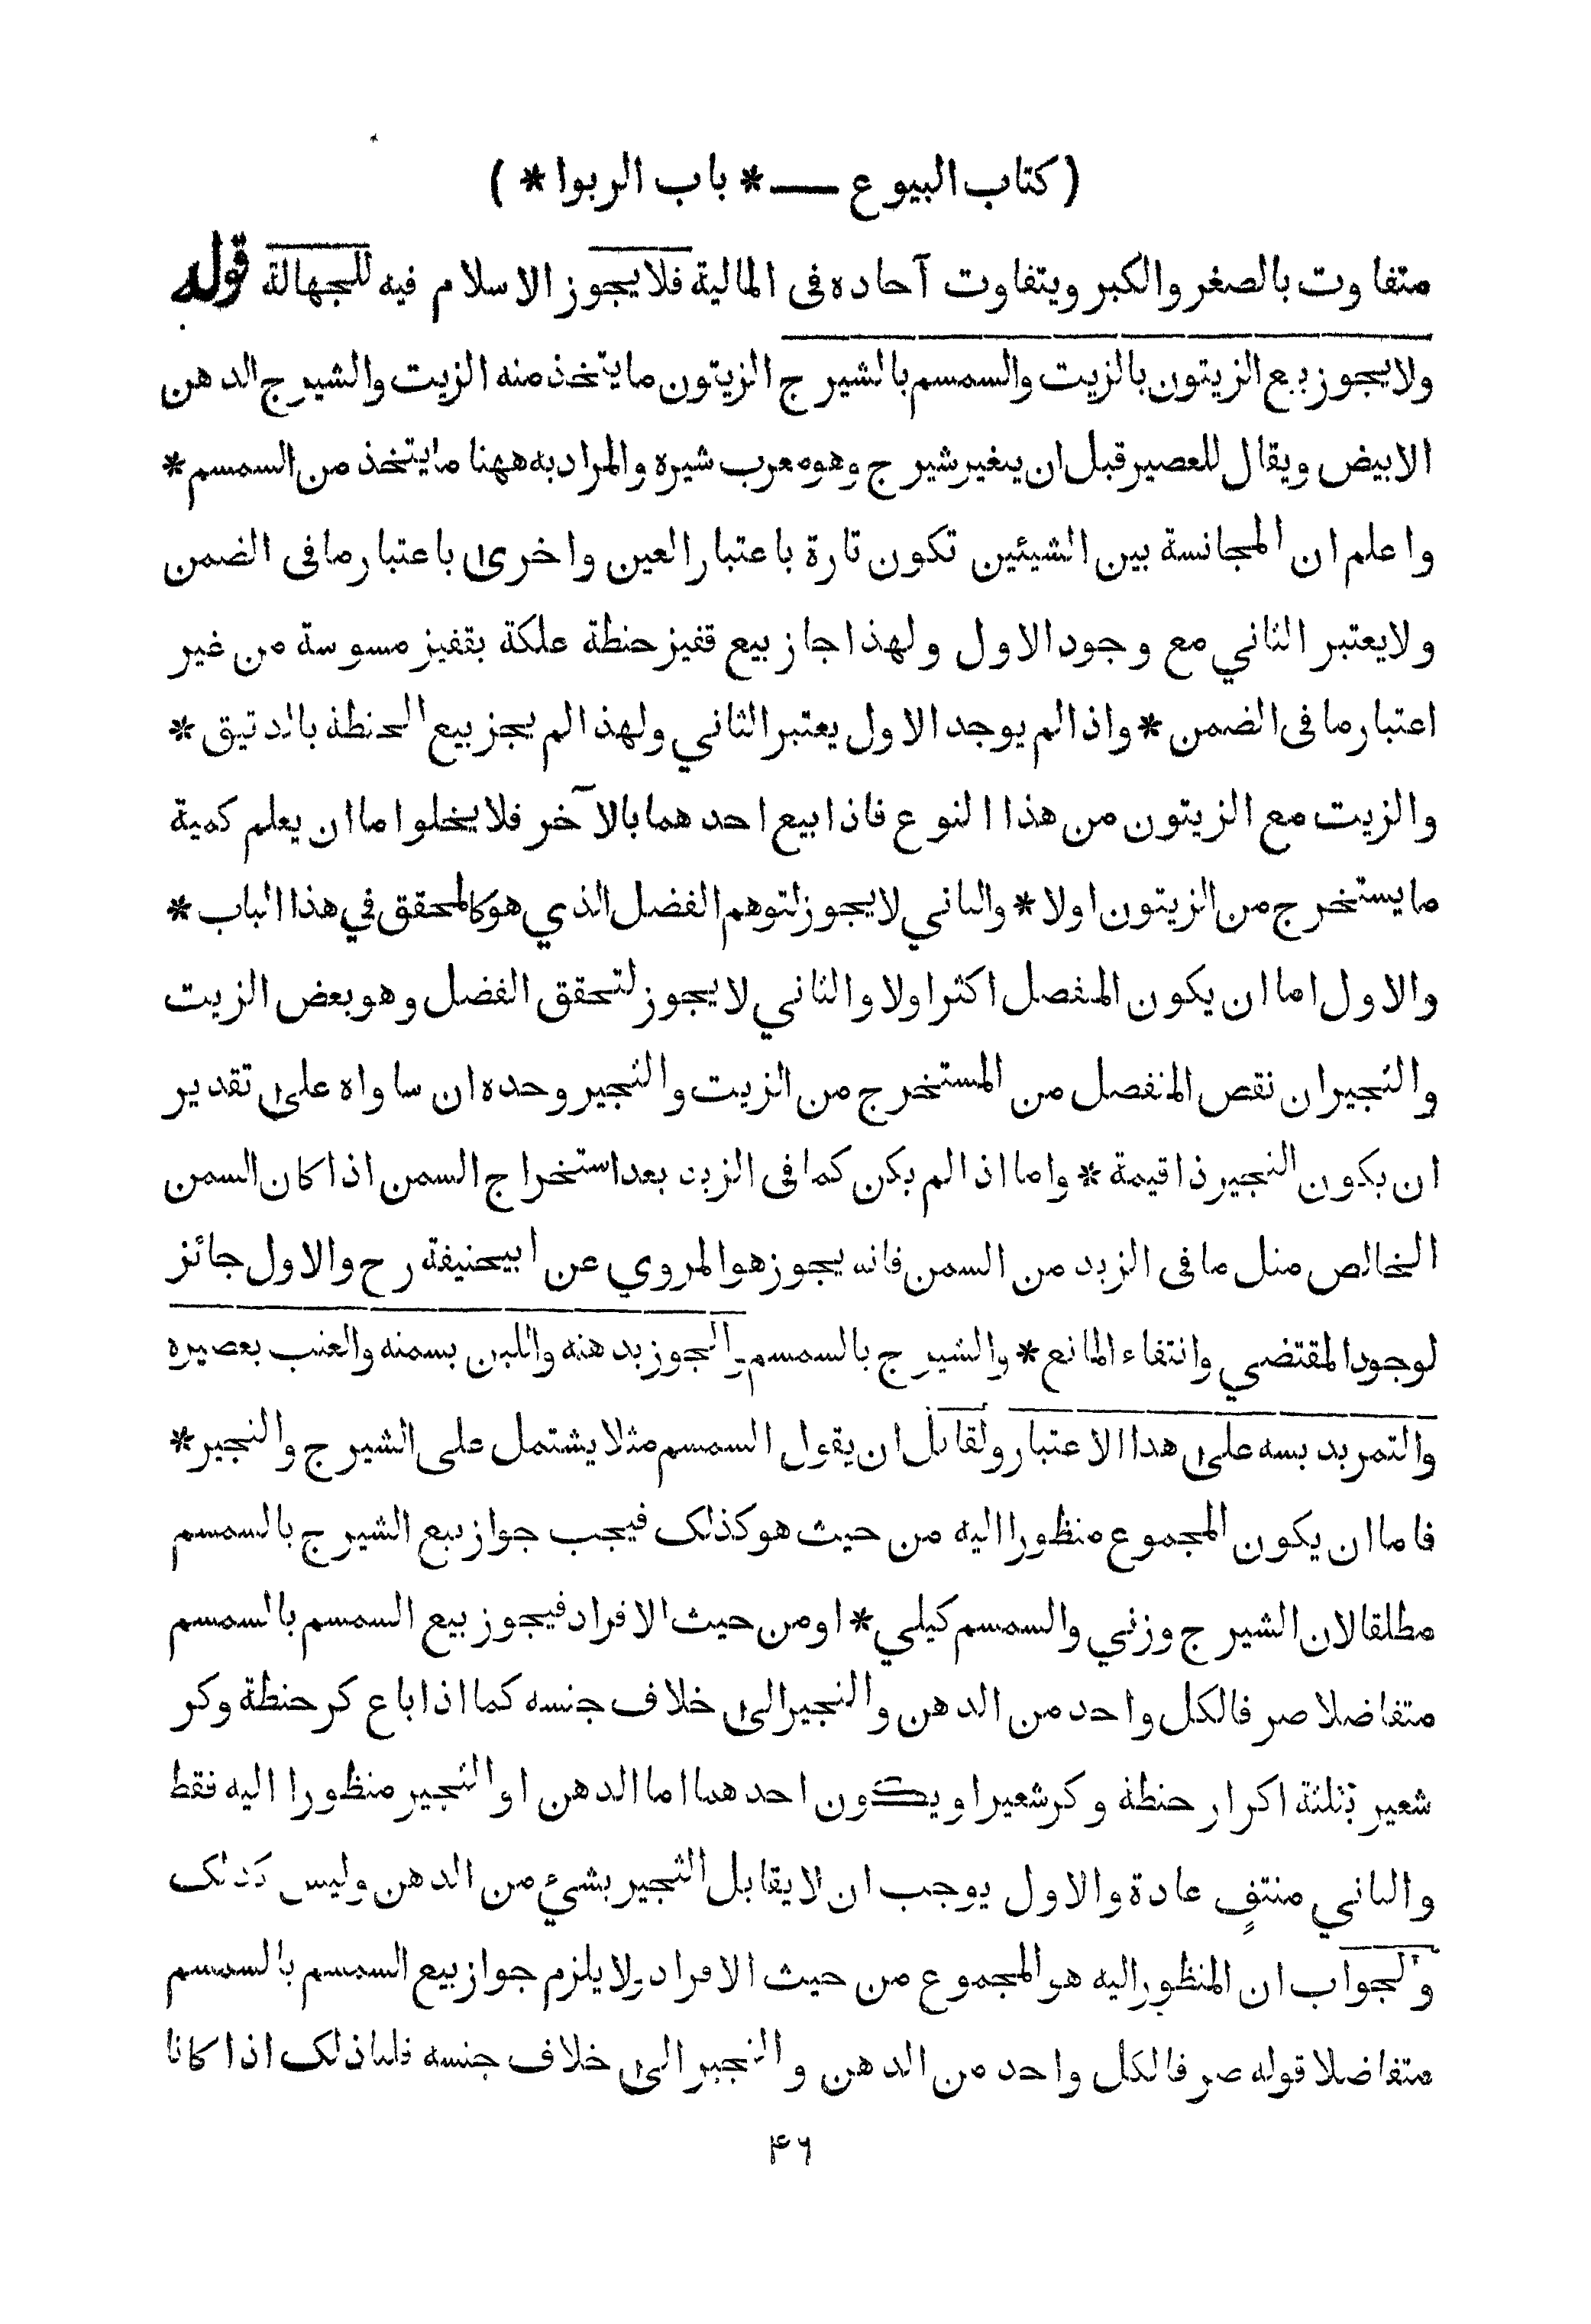 ( كتاب البيوع — * باب الربوا * )
متفاوت بالصغر والكبر ويتفاوت آحاده في المالية فلا يجوز الاسلام فيه للجهالة قوله
ولا يجوز بيع الزيتون بالزيت والسمسم بالشيرج الزيتون ما يتخذ منه الزيت والشيرج الدهن
الابيض ويقال للعصير قبل ان يتغير شيرج وهو معرب شيره والمراد به ههنا ما يتخذ من السمسم *
واعلم ان المجانسة بين الشيئين تكون تارة باعتبار العين واخرى باعتبار ما في الضمن
ولا يعتبر الثاني مع وجود الاول ولهذا جاز بيع قفيز حنطة علكة بقفيز مسوسة من غير
اعتبار ما في الضمن * واذا لم يوجد الاول يعتبر الثاني ولهذا لم يجز بيع الحنطة بالدقيق *
والزيت مع الزيتون من هذا النوع فاذا بيع احدهما بالآخر فلا يخلوا ما ان يعلم كمية
ما يستخرج من الزيتون اولا * والثاني لا يجوز لتوهم الفضل الذي هو كالمحقق في هذا الباب *
والاول اما ان يكون المنفصل اكثر اولا والثاني لا يجوز لتحقق الفضل وهو بعض الزيت
والثجير ان نقص المنفصل من المستخرج من الزيت والثجير وحده ان ساواه على تقدير
ان يكون الثجير ذا قيمة * واما اذا لم يكن كما في الزبد بعد استخراج السمن اذا كان السمن
الخالص مثل ما في الزبد من السمن فانه يجوز هو المروي عن ابيحنيفة رح والاول جائز
لوجود المقتضي وانتفاء المانع * والشيرج بالسمسم والجوز بدهنه واللبن بسمنه والعنب بعصيره
والتمر بدبسه على هذا الاعتبار ولقائل ان يقول السمسم مثلا يشتمل على الشيرج والثجير *
فاما ان يكون المجموع منظورا اليه من حيث هو كذلك فيجب جواز بيع الشيرج بالسمسم
مطلقا لان الشيرج وزني والسمسم كيلي * او من حيث الافراد فيجوز بيع السمسم بالسمسم
متفاضلا صرفا لكل واحد من الدهن والثجير الى خلاف جنسه كما اذا باع كر حنطة وكر
شعير بثلثة اكرار حنطة وكر شعير او يكون احدهما اما الدهن او الثجير منظورا اليه فقط
والثاني منتفٍ عادة والاول يوجب ان لا يقابل الثجير بشيء من الدهن وليس كذلك
والجواب ان المنظور اليه هو المجموع من حيث الافراد ولا يلزم جواز بيع السمسم بالسمسم
متفاضلا قوله صرفا لكل واحد من الدهن والثجير الى خلاف جنسه قلنا ذلك اذا كانا
۴۶